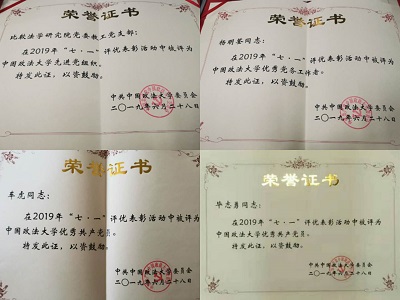 荣誉证书
比较法学研究院党委教工党支部：
在2019年“七·一”评优表彰活动中被评为
中国政法大学先进党组织。
特发此证，以资鼓励。
中共中国政法大学委员会
二〇一九年六月二十八日
荣誉证书
同志：
在2019年“七·一”评优表彰活动中被评为
中国政法大学优秀党务工作者。
特发此证，以资鼓励。
中共中国政法大学委员会
二〇一九年六月二十八日
荣誉证书
车虎同志：
在2019年“七·一”评优表彰活动中被评为
中国政法大学优秀共产党员。
特发此证，以资鼓励。
中共中国政法大学委员会
二〇一九年六月二十八日
荣誉证书
毕志勇同志：
在2019年“七·一”评优表彰活动中被评为
中国政法大学优秀共产党员。
特发此证，以资鼓励。
中共中国政法大学委员会
二〇一九年六月二十八日